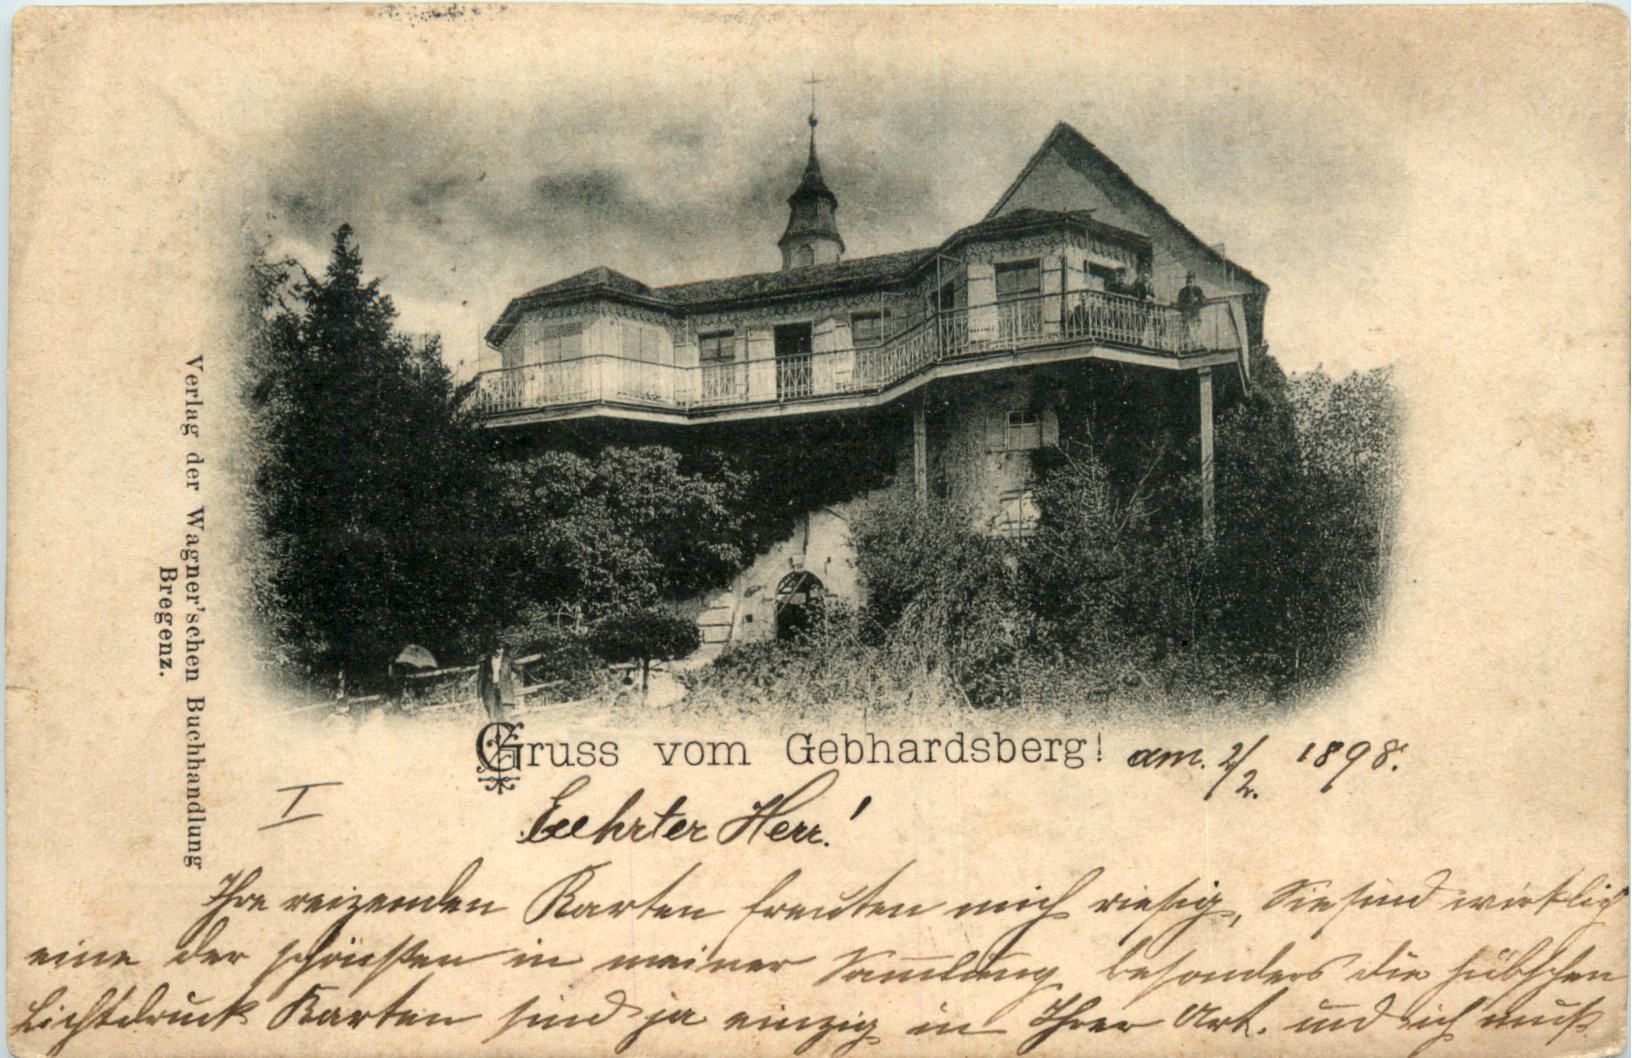 Verlag der Wagner'schen Buchhandlung
Bregenz.
Gruss vom Gebhardsberg! am. 2/2. 1898.
I
Geehrter Herr!
Ihre reizenden Karten freuten mich riesig, Sie sind wirklich
eine der schönsten in meiner Sammlung besonders die hübschen
Lichtdruck Karten sind ja einzig in Ihrer Art. und ich muß